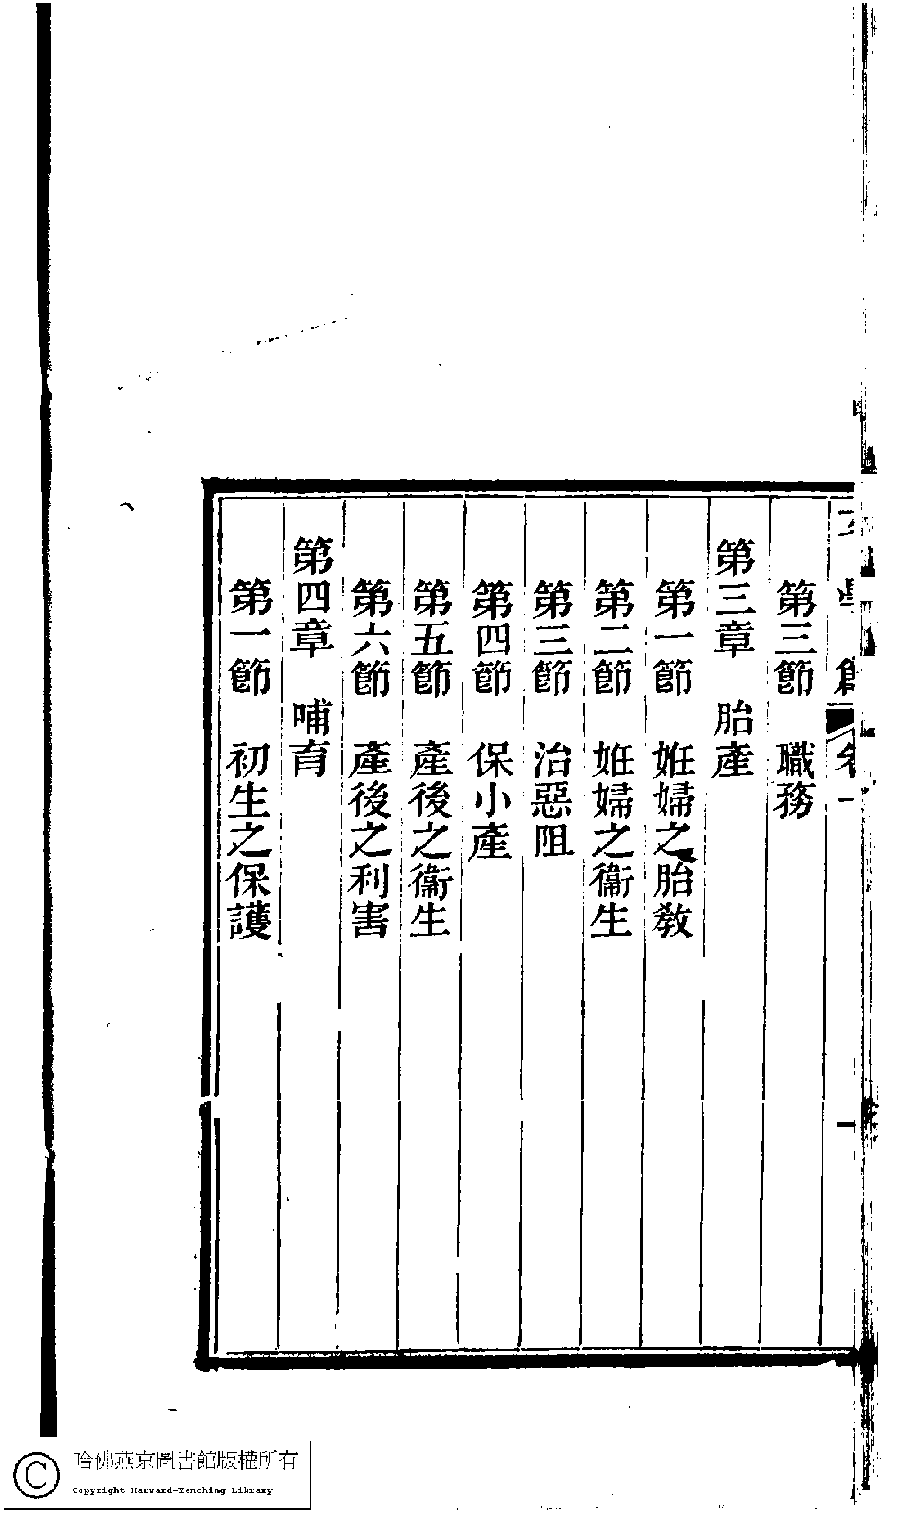 第三節　職務
第三章　胎產
第一節　姙婦之胎教
第二節　姙婦之衞生
第三節　治惡阻
第四節　保小產
第五節　產後之衞生
第六節　產後之利害
第四章　哺育
第一節　初生之保護
哈佛燕京圖書館版權所有
Copyright Harvard-Yenching Library